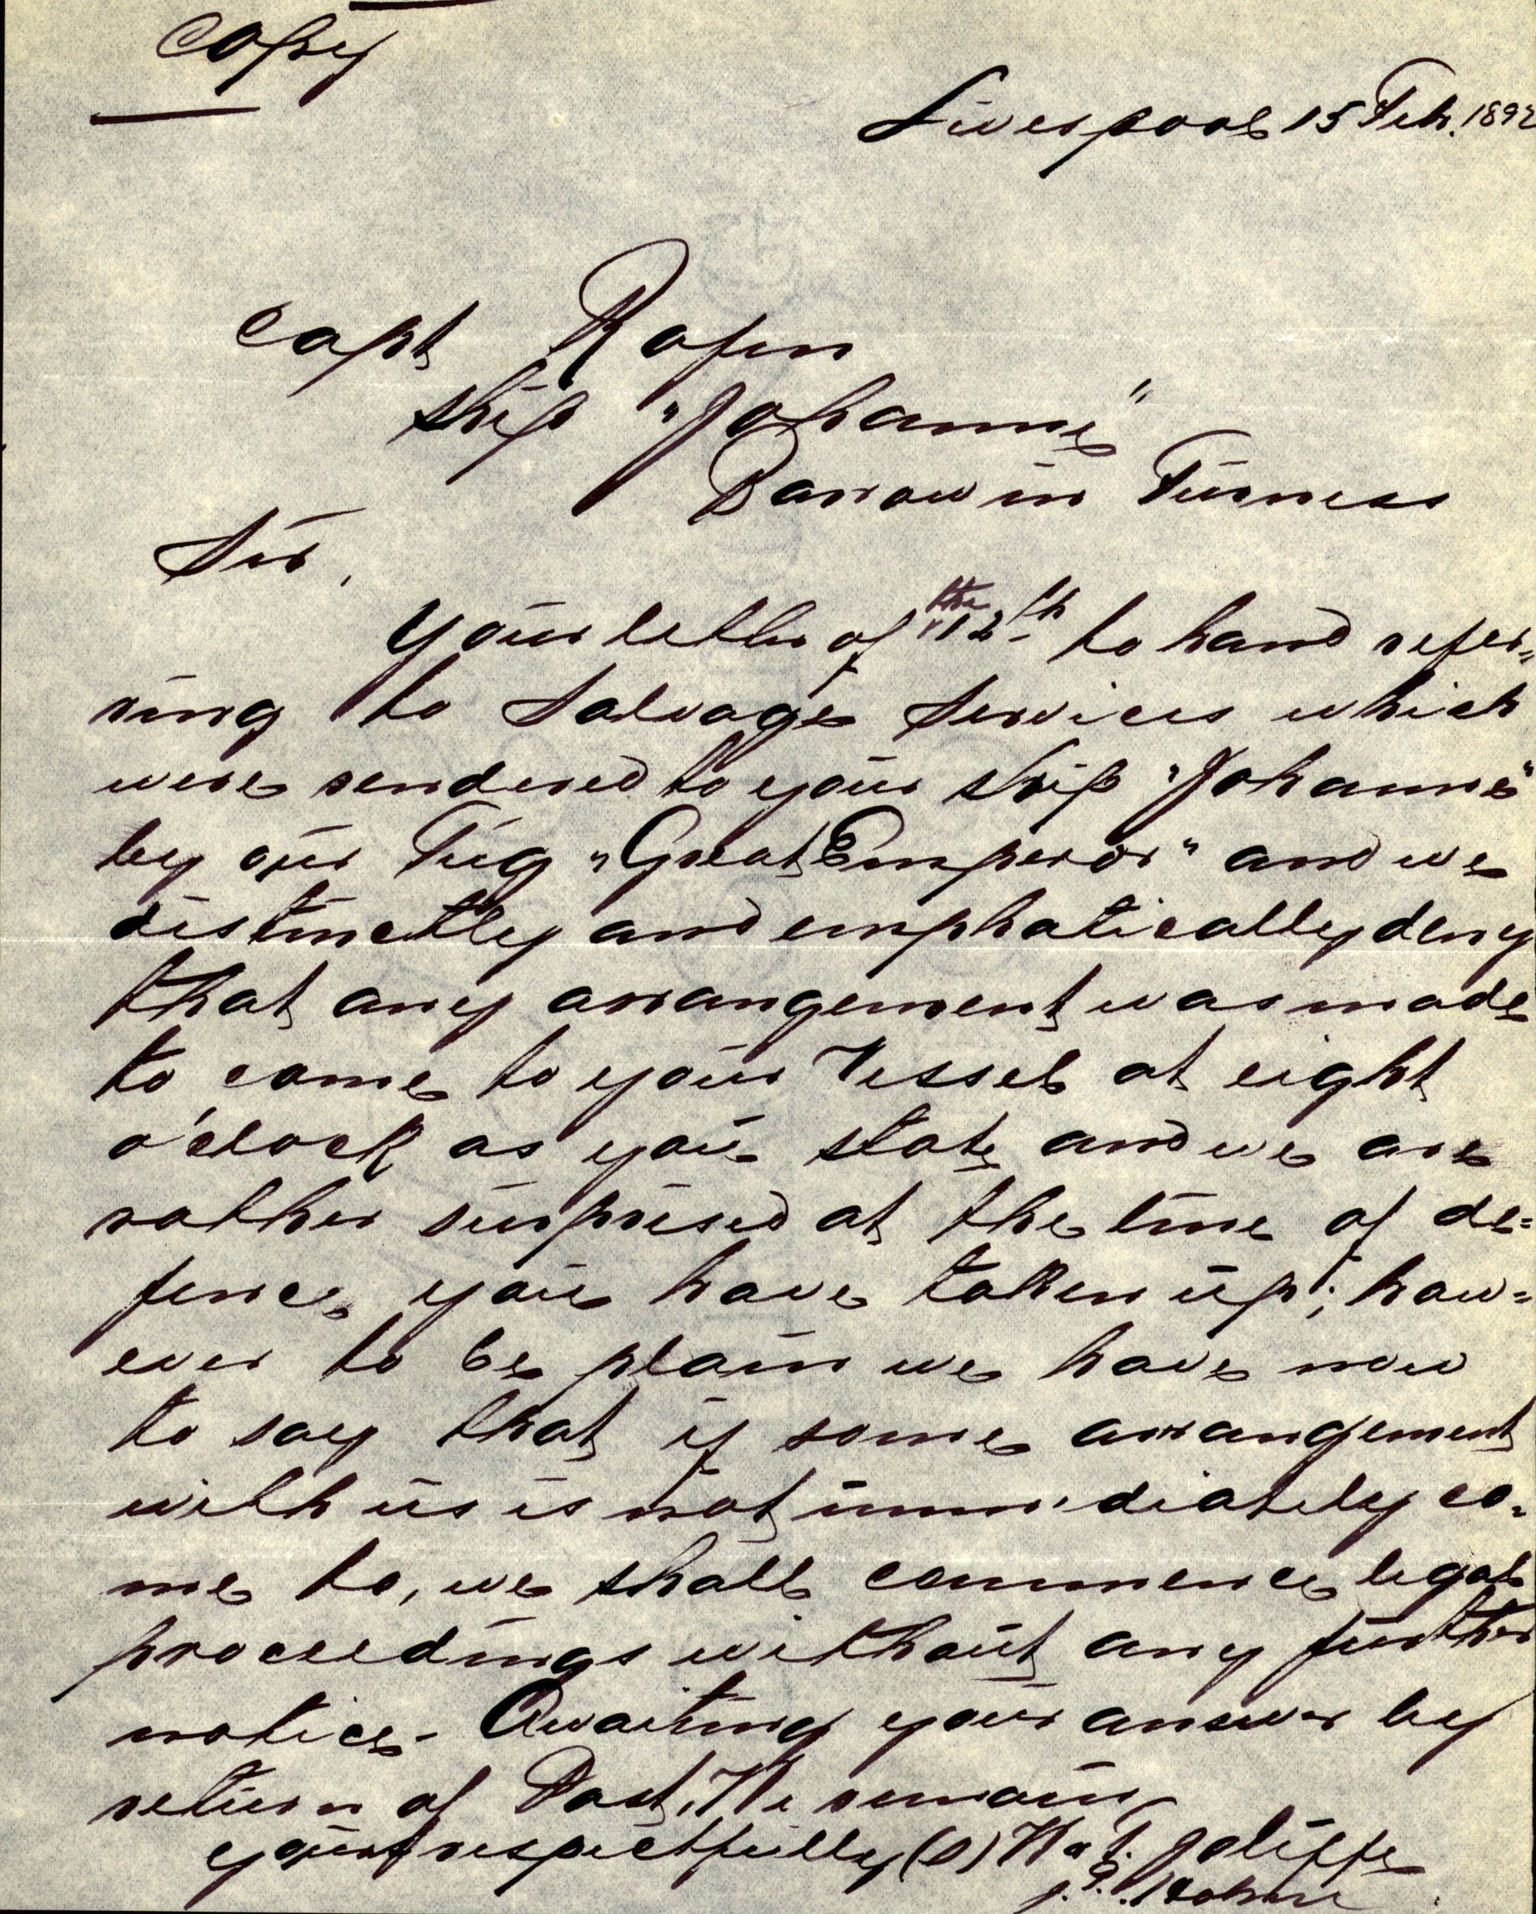 Copy
Liverpool 15 Feb. 1892
Capt Rafen
ship "Johanne"
Barrow in Furness
Sir,
Your letter of the 12th to hand refer-
ring to Salvage Services which
were rendered to your ship "Johanne"
by our Tug "Great Emperor" and we
distinctly and emphatically deny
that any arrangement was made
to come to your Vessel at eight
o'clock as you state and we are
rather surprised at the line of de=
fence you have taken up; how=
ever to be plain we have now
to say that if some arrangement
with us is not immediately co-
me to, we shall commence legal
proceedings without any further
notice. Awaiting your answer by
return of Post, We remain
yours respectfully (s) W & T. Joliffe